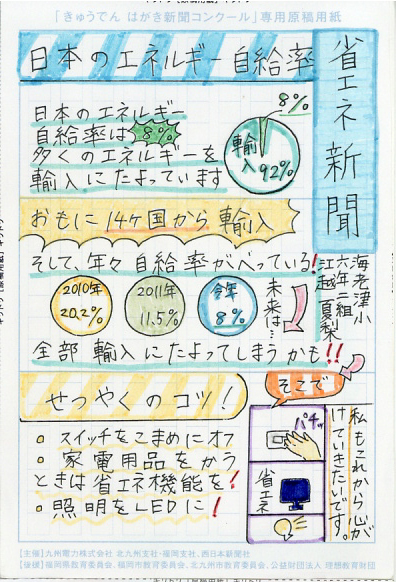 「きゅうでん はがき新聞コンクール」専用原稿用紙
省エネ新聞
海老津小
六年二組
江越 夏梨
日本のエネルギー自給率
日本のエネルギー
自給率は8%
多くのエネルギーを
輸入にたよっています
8%
輸入92%
おもに14ヶ国から輸入
そして、年々自給率がへっている!
2010年
20.2%
2011年
11.5%
今年
8%
未来は…
全部輸入にたよってしまうかも!!
そこで
せつやくのコツ!
・スイッチをこまめにオフ
・家電用品をかう
ときは省エネ機能を!
・照明をLEDに!
パチッ
省エネ
私もこれから心が
けていきたいです。
[主催]九州電力株式会社 北九州支社・福岡支社、西日本新聞社
[後援]福岡県教育委員会、福岡市教育委員会、北九州市教育委員会、公益財団法人 理想教育財団